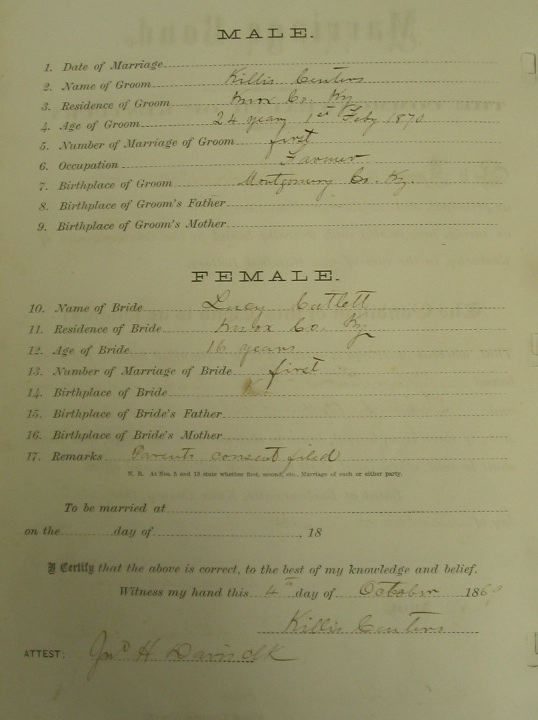 MALE.
1. Date of Marriage
2. Name of Groom Killis Centers
3. Residence of Groom Knox Co. Ky
4. Age of Groom 24 years 1st Feby 1870
5. Number of Marriage of Groom first
6. Occupation Farmer
7. Birthplace of Groom Montgomery Co. Ky.
8. Birthplace of Groom's Father
9. Birthplace of Groom's Mother
FEMALE.
10. Name of Bride Lucy Catlett
11. Residence of Bride Knox Co. Ky
12. Age of Bride 16 years
13. Number of Marriage of Bride first
14. Birthplace of Bride
15. Birthplace of Bride's Father
16. Birthplace of Bride's Mother
17. Remarks Parents consent filed
N. B. At Nos. 5 and 13 state whether first, second, etc., Marriage of each or either party.
To be married at
on the day of , 18
I Certify that the above is correct, to the best of my knowledge and belief.
Witness my hand this 4th day of October 1869
Killis Centers
ATTEST: Jno H Davis clk